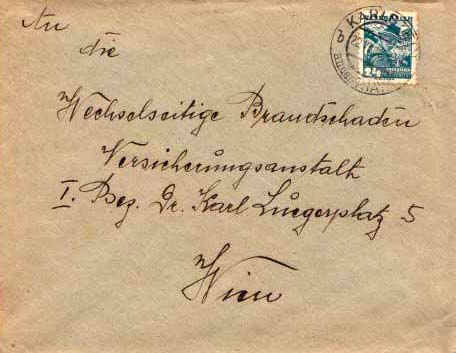 An
die
Wechselseitige Brandschaden
Versicherungsanstalt
I. Bez. Dr. Karl Luegerplatz 5
Wien
24